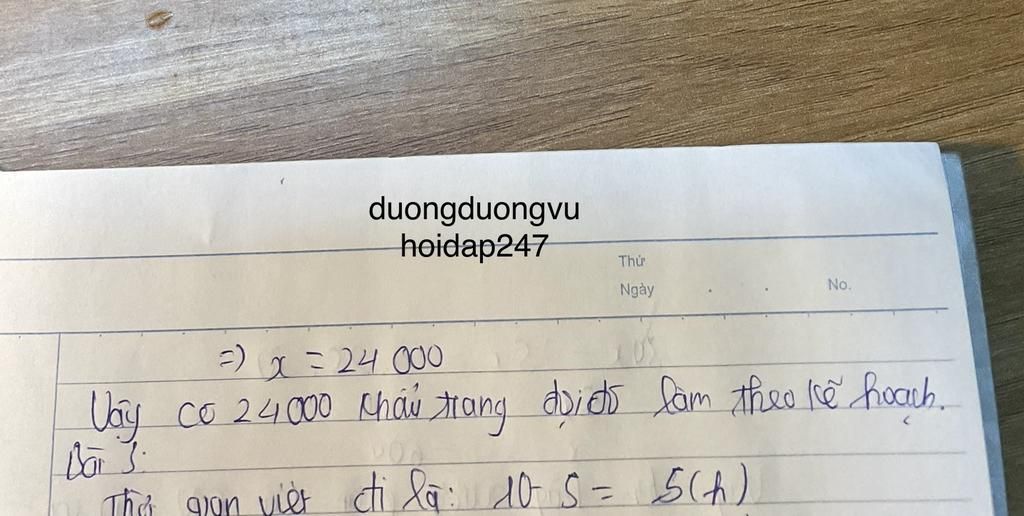 duongduongvu
hoidap247
Thứ
Ngày . . No.
=) x = 24 000
Vậy có 24000 khẩu trang đội đó làm theo kế hoạch.
Bài 3:
Thời gian việt đi là: 10 - 5 = 5(h)